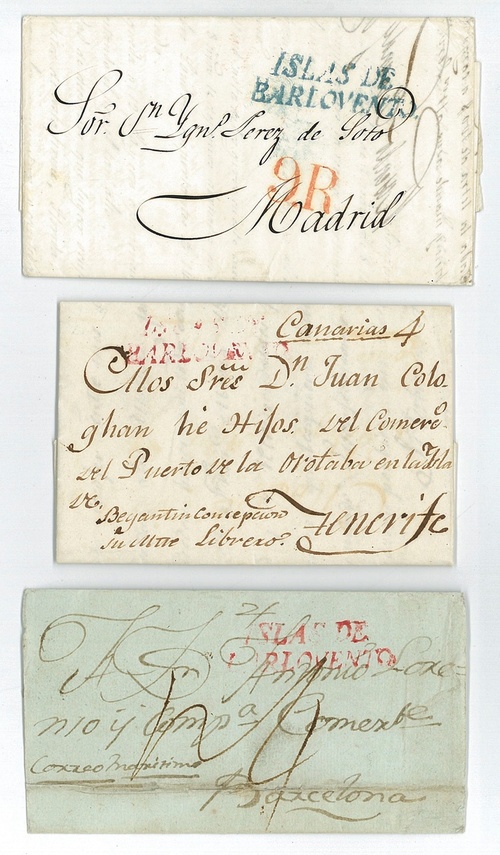 ISLAS DE
BARLOVENTO.
Sor. Dn Ygno. Perez de Soto
9R
Madrid
BARLOVENTO
Canarias 4
Sres Dn. Juan Colo
ghan he Hijos. del Comero.
del Puerto de la Orotaba en la Ysla
de
Begantin Concepcion
su Mtre Librero.
Tenerife
ISLAS DE
BARLOVENTO
A Dn Antonio Lore=
nzo y Compa. Comerte
Correo maritimo
Barcelona